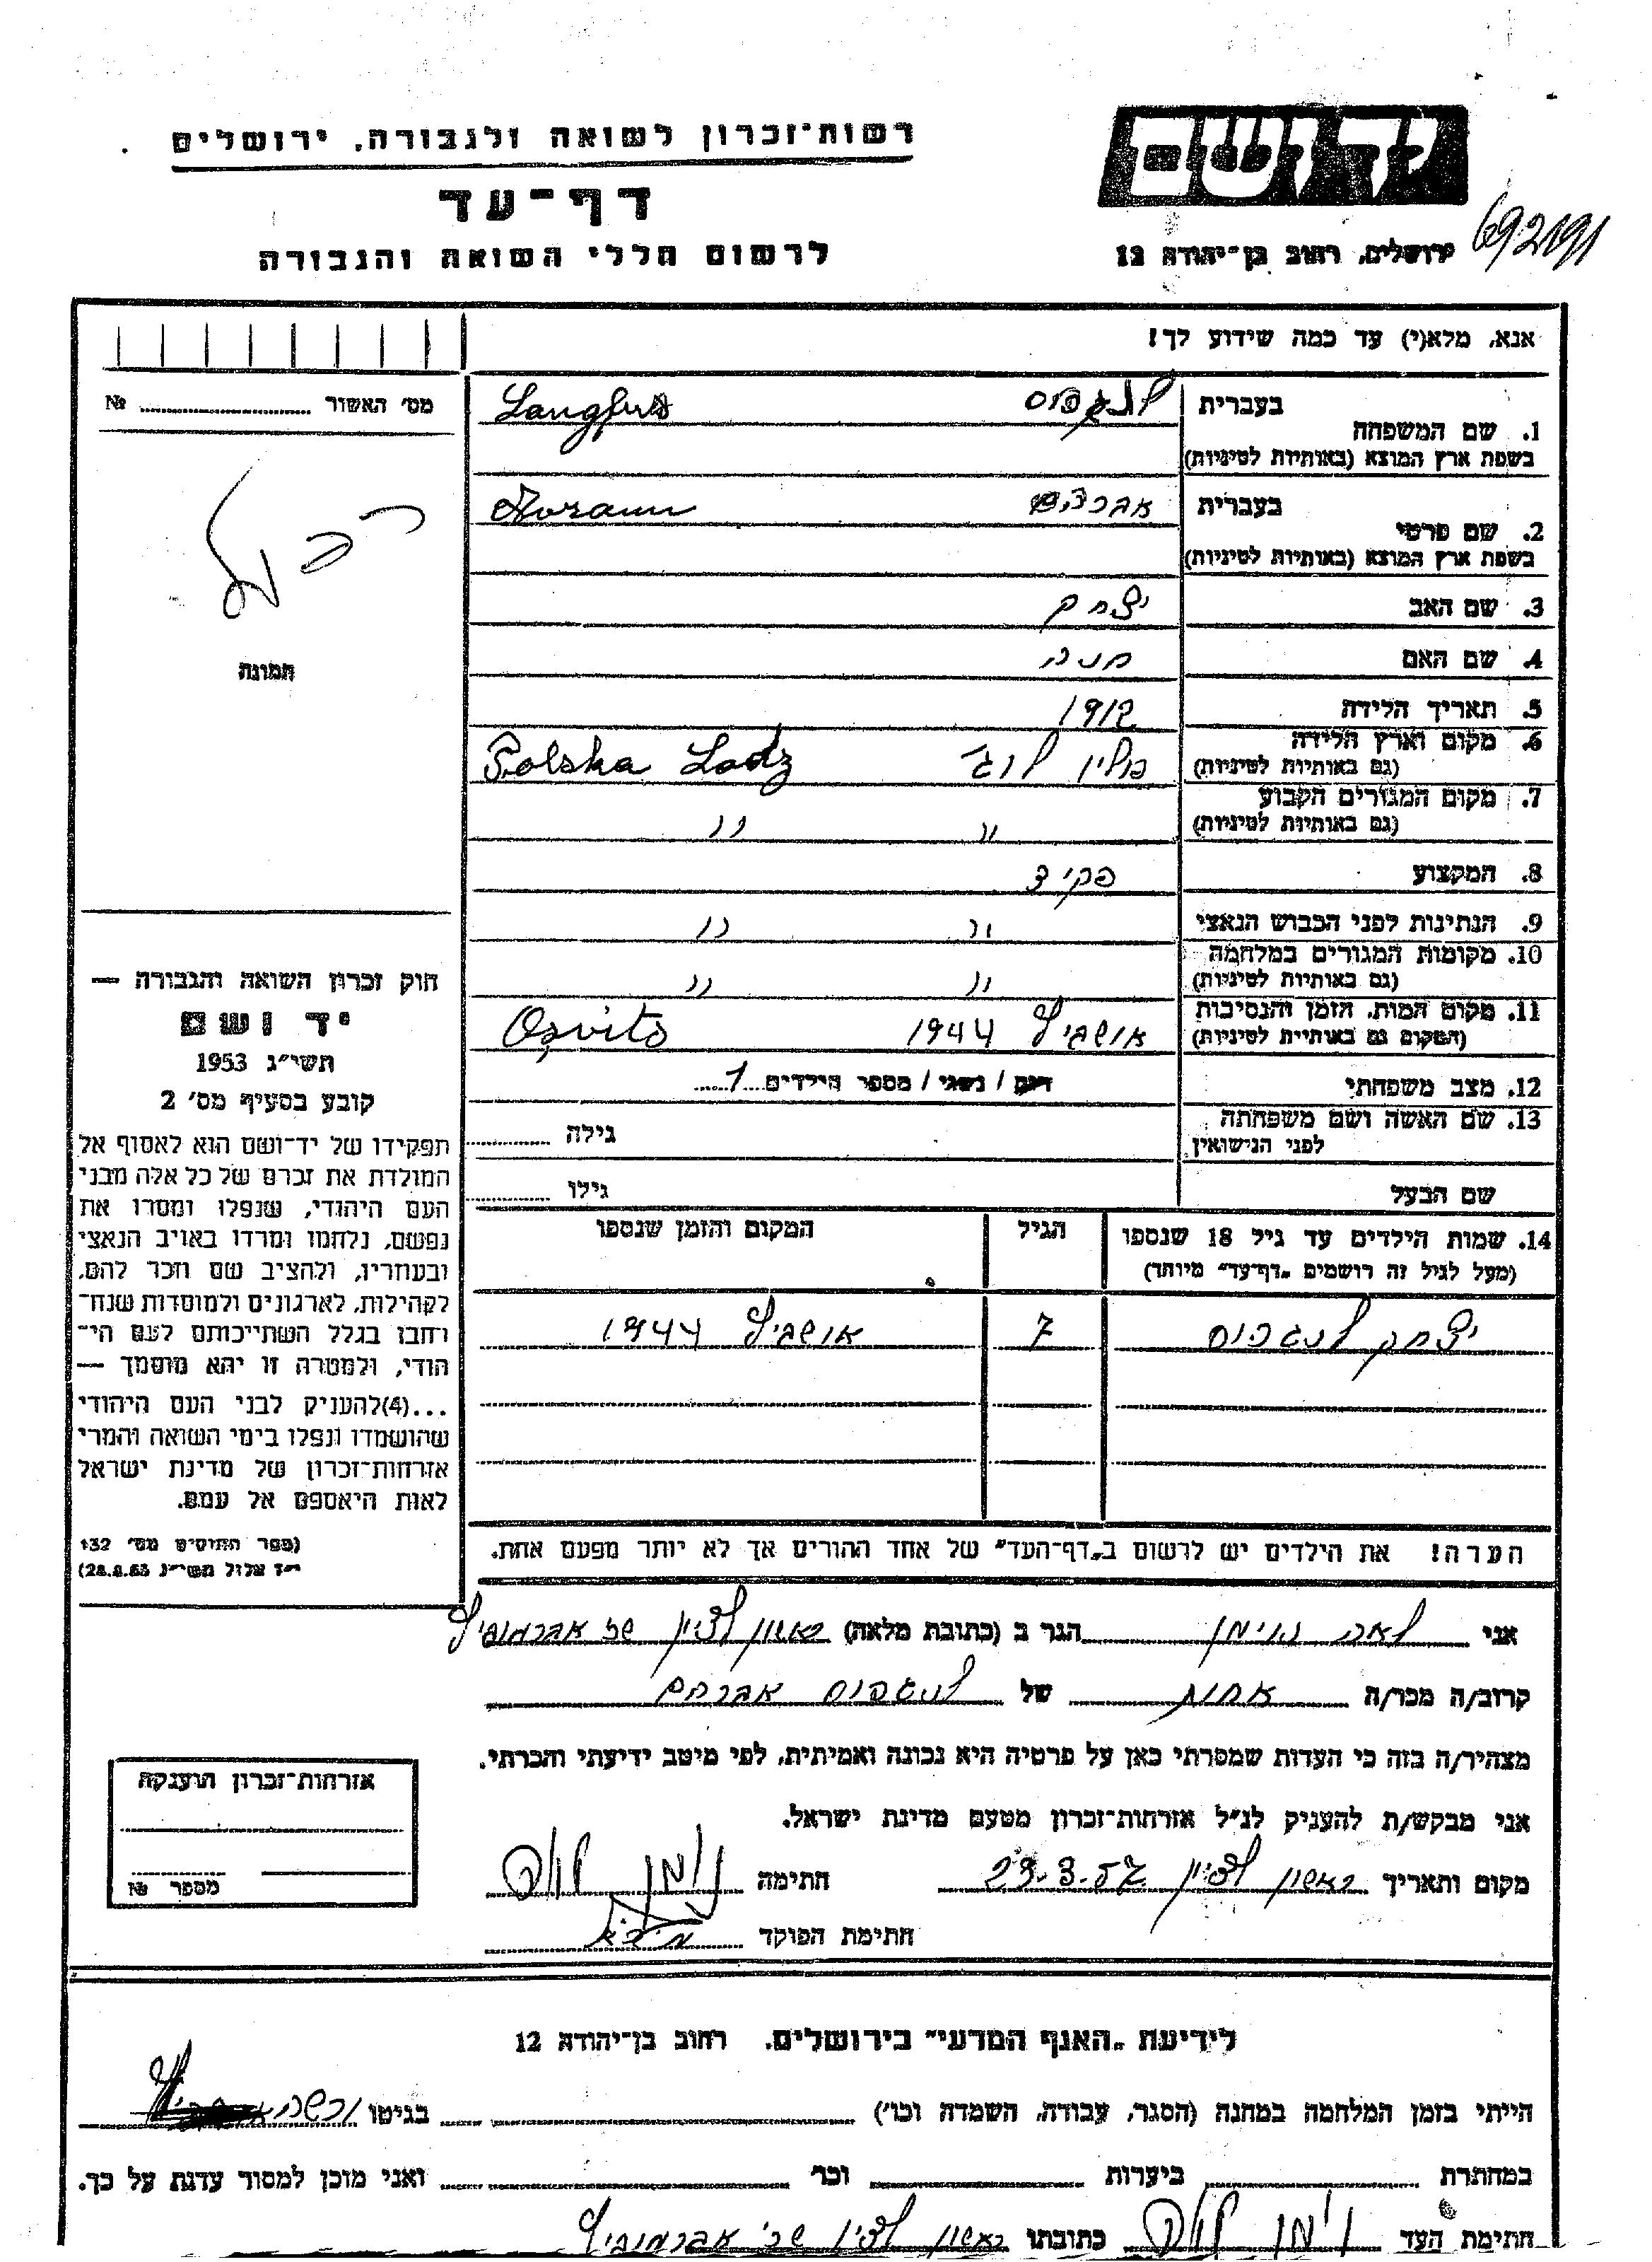 רשות־זכרון לשואה ולגבורה, ירושלים
דף־עד
לרשום חללי השואה והגבורה
יד ושם
ירושלים, רחוב בן־יהודה 12
692191
אנא, מלא(י) עד כמה שידוע לך!
מס׳ האשור № 
תמונה
חוק זכרון השואה והגבורה —
יד ושם
תשי״ג 1953
קובע בסעיף מס׳ 2
תפקידו של יד־ושם הוא לאסוף אל
המולדת את זכרם של כל אלה מבני
העם היהודי, שנפלו ומסרו את
נפשם, נלחמו ומרדו באויב הנאצי
ובעוזריו, ולהציב שם וזכר להם,
לקהילות, לארגונים ולמוסדות שנח־
רחבו בגלל השתייכותם לעם הי־
הודי, ולמטרה זו יהא מוסמך —
...(4)להעניק לבני העם היהודי
שהושמדו ונפלו בימי השואה והמרי
אזרחות־זכרון של מדינת ישראל
לאות היאספם אל עמם.
(ספר החוקים מס׳ 132
י״ז אלול תשי״ג 28.8.53)
בעברית לנגפוס
1. שם המשפחה
בשפת ארץ המוצא (באותיות לטיניות) Langfus
בעברית אברהם
2. שם פרטי
בשפת ארץ המוצא (באותיות לטיניות)
3. שם האב יצחק
4. שם האם חנה
5. תאריך הלידה 1912
6. מקום וארץ הלידה פולין לודז׳ Polska Lodz
(גם באותיות לטיניות)
7. מקום המגורים הקבוע " "
(גם באותיות לטיניות)
8. המקצוע פקיד
9. הנתינות לפני הכבוש הנאצי " "
10. מקומות המגורים במלחמה " "
(גם באותיות לטיניות)
11. מקום המות, הזמן והנסיבות אושביץ 1944 Osvits
(המקום גם באותיות לטיניות)
12. מצב משפחתי רווק / נשוי / מספר הילדים 1
13. שם האשה ושם משפחתה גילה
לפני הנישואין
שם הבעל גילו
14. שמות הילדים עד גיל 18 שנספו הגיל המקום והזמן שנספו
(מעל לגיל זה רושמים „דף־עד״ מיוחד)
יצחק לנגפוס 7 אושביץ 1944
הערה! את הילדים יש לרשום ב„דף־העד״ של אחד ההורים אך לא יותר מפעם אחת.
אני לאה נוימן הגר ב (כתובת מלאה) ראשון לציון שכ אברמוביץ
קרוב/ה מכר/ה אחות של לנגפוס אברהם
מצהיר/ה בזה כי העדות שמסרתי כאן על פרטיה היא נכונה ואמיתית, לפי מיטב ידיעתי והכרתי.
אני מבקש/ת להעניק לנ״ל אזרחות־זכרון מטעם מדינת ישראל.
מקום ותאריך ראשון לציון 23.3.57 חתימה נוימן לאה
חתימת הפוקד
אזרחות־זכרון הוענקה
מספר №
לידיעת „האגף המדעי״ בירושלים, רחוב בן־יהודה 12
הייתי בזמן המלחמה במחנה (הסגר, עבודה, השמדה וכו׳) בגיטו ורשה
במחתרת ביערות וכו׳ ואני מוכן למסור עדות על כך.
חתימת העד נוימן לאה כתובתו ראשון לציון שכ׳ אברמוביץ